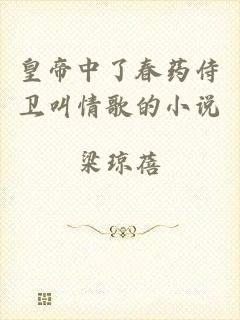 皇帝中了春药侍
卫叫情歌的小说
梁琼蓓